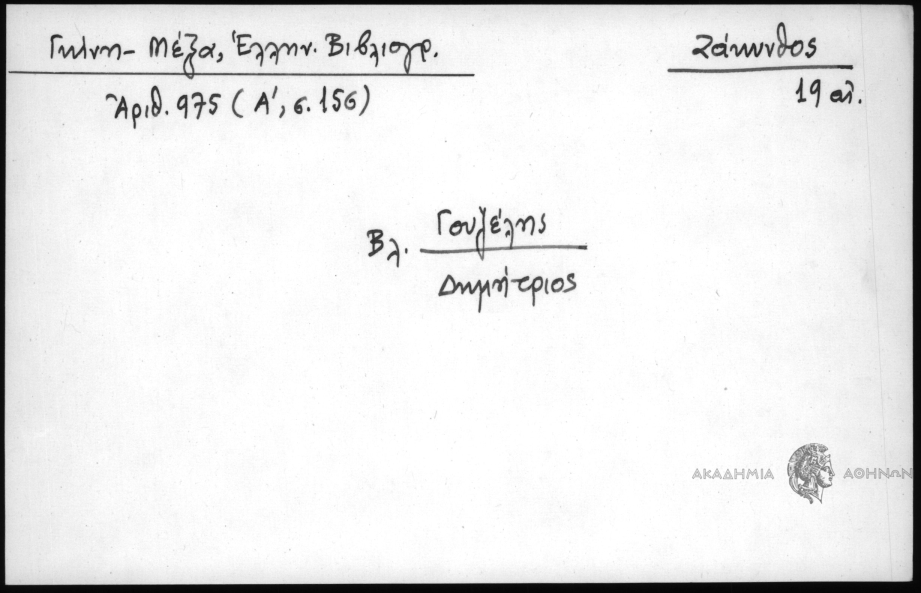 Γκίνη - Μέξα, Ἑλλην. Βιβλιογρ.
Ζάκυνθος
Ἀριθ. 975 (Α', σ. 156)
19 αἰ.
Βλ. Γουζέλης
Δημήτριος
ΑΚΑΔΗΜΙΑ ΑΘΗΝΩΝ